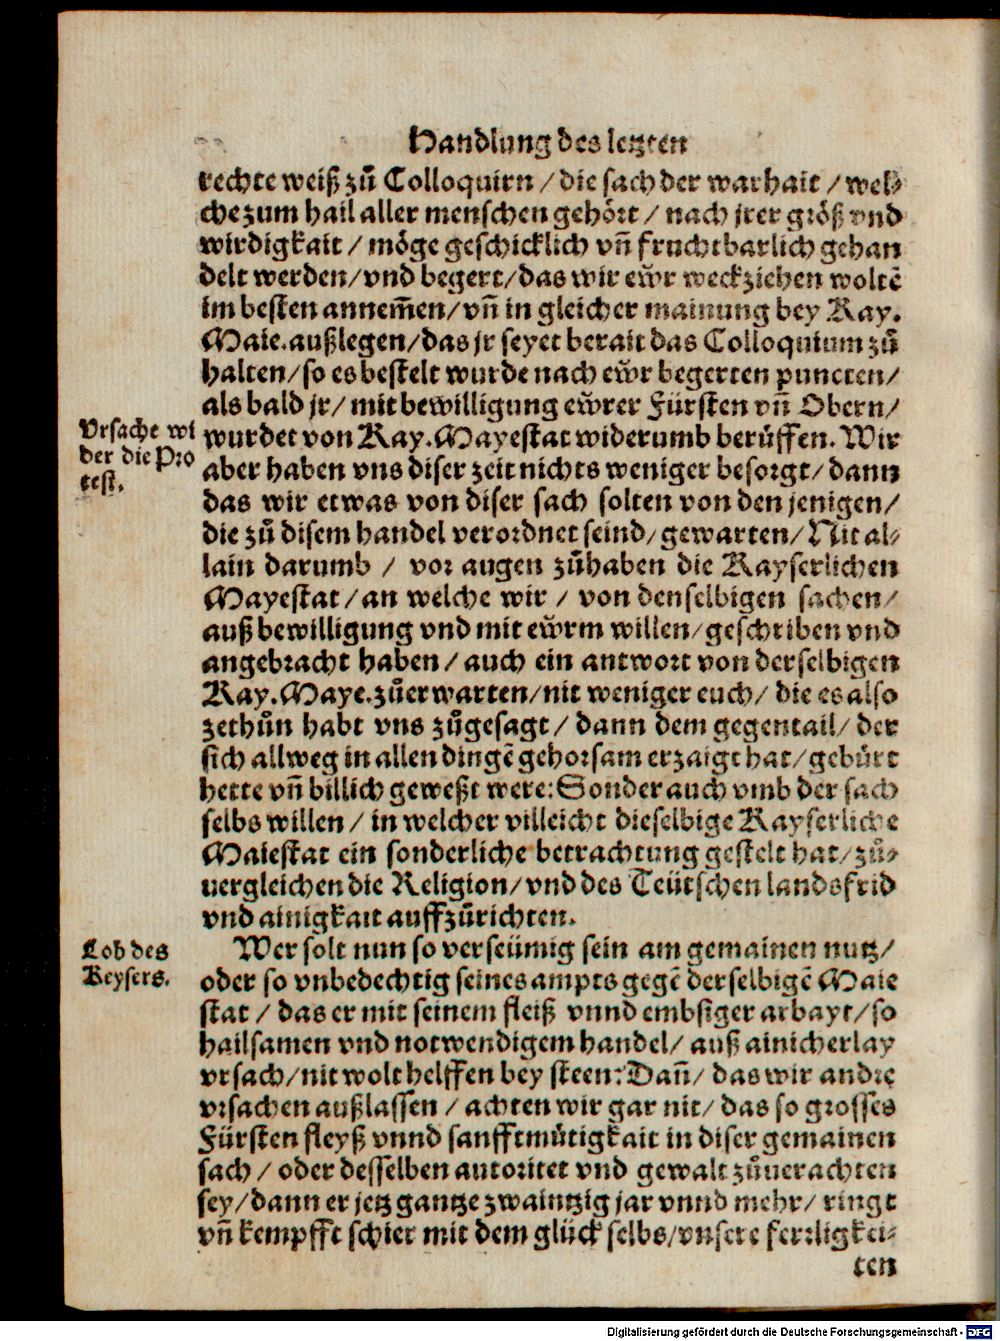 Handlung des letzten
rechte weiß zů Colloquirn / die sach der warhait / wel⸗
che zum hail aller menschen gehört / nach jrer größ vnd
wirdigkait / möge geschicklich vñ fruchtbarlich gehan
delt werden / vnd begert / das wir ewr weckziehen woltē
im besten annem̄en / vñ in gleicher mainung bey Kay.
Maie. außlegen / das jr seyet berait das Colloquium zů
halten / so es bestelt wurde nach ewr begerten puncten /
als bald jr / mit bewilligung ewrer Fürsten vñ Obern /
Vrsache wi
der die Pro
test.
wurdet von Kay. Mayestat widerumb berůffen. Wir
aber haben vns diser zeit nichts weniger besorgt / dann
das wir etwas von diser sach solten von den jenigen /
die zů disem handel verordnet seind / gewarten / Nit al⸗
lain darumb / vor augen zůhaben die Kayserlichen
Mayestat / an welche wir / von denselbigen sachen /
auß bewilligung vnd mit ewrm willen / geschriben vnd
angebracht haben / auch ein antwort von derselbigen
Kay. Maye. zůerwarten / nit weniger euch / die es also
zethůn habt vns zůgesagt / dann dem gegentail / der
sich allweg in allen dingē gehorsam erzaigt hat / gebürt
hette vñ billich geweßt were: Sonder auch vmb der sach
selbs willen / in welcher villeicht dieselbige Kayserliche
Maiestat ein sonderliche betrachtung gestelt hat / zů⸗
uergleichen die Religion / vnd des Teütschen landsfrid
vnd ainigkait auffzůrichten.
Lob des
Keysers.
Wer solt nun so verseümig sein am gemainen nutz /
oder so vnbedechtig seines ampts gegē derselbigē Maie
stat / das er mit seinem fleiß vnnd embsiger arbayt / so
hailsamen vnd notwendigem handel / auß ainicherlay
vrsach / nit wolt helffen bey steen: Dañ / das wir andre
vrsachen außlassen / achten wir gar nit / das so grosses
Fürsten fleyß vnnd sanfftmütigkait in diser gemainen
sach / oder desselben autoritet vnd gewalt zůuerachten
sey / dann er jetz gantze zwaintzig jar vnnd mehr / ringt
vñ kempfft schier mit dem glück selbs / vnsere ferrligkei⸗
ten
Digitalisierung gefördert durch die Deutsche Forschungsgemeinschaft - DFG